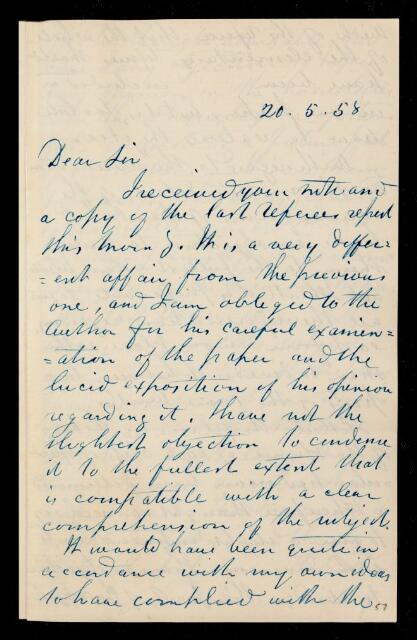 20.5.58
Dear Sir
I received your note and
a copy of the last referees report
this morng. It is a very differ=
=ent affair from the previous
one, and I am obliged to the
Author for his careful examin=
=ation of the paper and the
lucid exposition of his opinion
regarding it. I have not the
slightest objection to condense
it to the fullest extent that
is compatible with a clear
comprehension of the subject.
It would have been quite in
accordance with my own ideas
to have complied with the